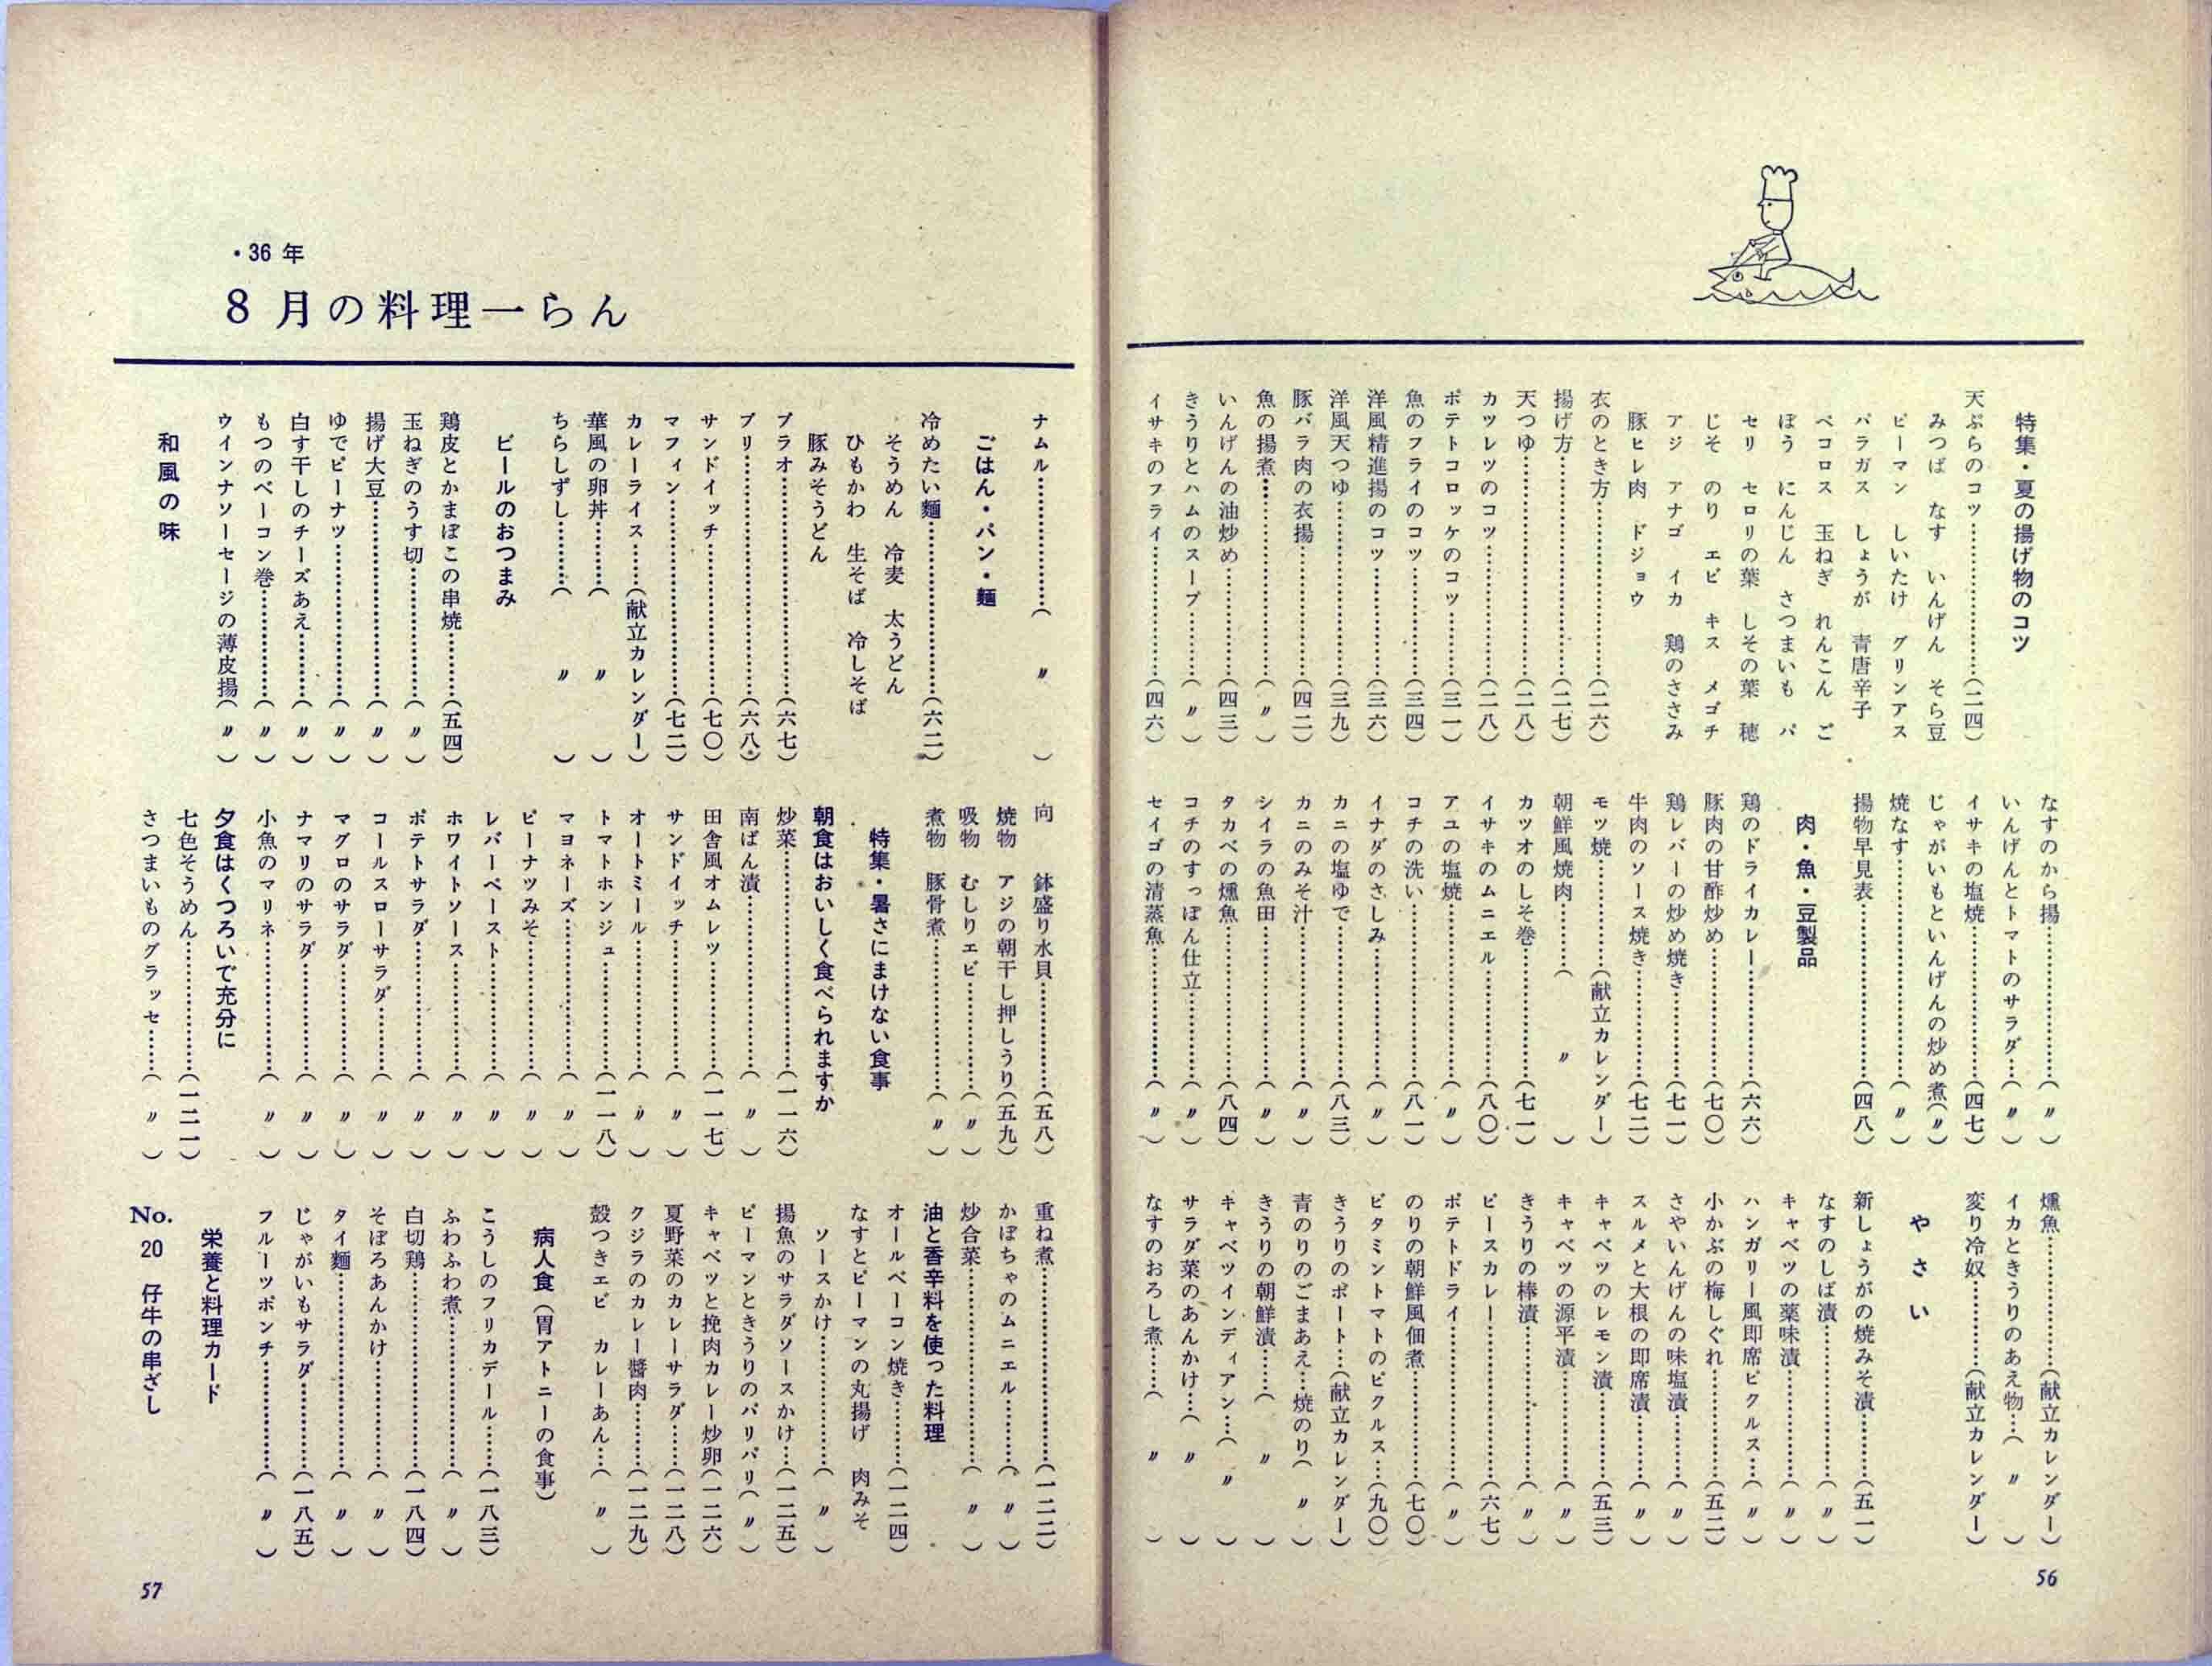 特集・夏の揚げ物のコツ
天ぷらのコツ……………(二四)
みつば なす いんげん そら豆
ピーマン しいたけ グリンアス
パラガス しょうが 青唐辛子
ペコロス 玉ねぎ れんこん ご
ぼう にんじん さつまいも パ
セリ セロリの葉 しその葉 穂
じそ のり エビ キス メゴチ
アジ アナゴ イカ 鶏のささみ
豚ヒレ肉 ドジョウ
衣のとき方……………(二六)
揚げ方……………(二七)
天つゆ……………(二八)
カツレツのコツ……………(二八)
ポテトコロッケのコツ……………(三一)
魚のフライのコツ……………(三四)
洋風精進揚のコツ……………(三六)
洋風天つゆ……………(三九)
豚バラ肉の衣揚……………(四二)
魚の揚煮……………(〃)
いんげんの油炒め……………(四三)
きうりとハムのスープ……………(〃)
イサキのフライ……………(四六)
なすのから揚……………(〃)
いんげんとトマトのサラダ……(〃)
イサキの塩焼……………(四七)
じゃがいもといんげんの炒め煮(〃)
焼なす……………(〃)
揚物早見表……………(四八)
肉・魚・豆製品
鶏のドライカレー……………(六六)
豚肉の甘酢炒め……………(七〇)
鶏レバーの炒め焼き……………(七一)
牛肉のソース焼き……………(七二)
モツ焼……………(献立カレンダー)
朝鮮風焼肉……………(〃)
カツオのしそ巻……………(七一)
イサキのムニエル……………(八〇)
アユの塩焼……………(〃)
コチの洗い……………(八一)
イナダのさしみ……………(〃)
カニの塩ゆで……………(八三)
カニのみそ汁……………(〃)
シイラの魚田……………(〃)
タカベの燻魚……………(八四)
コチのすっぽん仕立……………(〃)
セイゴの清蒸魚……………(〃)
燻魚……………(献立カレンダー)
イカときうりのあえ物…(〃)
変り冷奴……………(献立カレンダー)
やさい
新しょうがの焼みそ漬……………(五一)
なすのしば漬……………(〃)
キャベツの薬味漬……………(〃)
ハンガリー風即席ピクルス…(〃)
小かぶの梅しぐれ……………(五二)
さやいんげんの味塩漬……………(〃)
スルメと大根の即席漬……………(〃)
キャベツのレモン漬……………(五三)
キャベツの源平漬……………(〃)
きうりの棒漬……………(〃)
ピースカレー……………(六七)
ポテトドライ……………(〃)
のりの朝鮮風佃煮……………(七〇)
ビタミントマトのピクルス…(九〇)
きうりのボート……(献立カレンダー)
青のりのごまあえ…焼のり(〃)
きうりの朝鮮漬……(〃)
キャベツインディアン…(〃)
サラダ菜のあんかけ…(〃)
なすのおろし煮……(〃)
56
・36年
8月の料理一らん
ナムル……………(〃)
ごはん・パン・麺
冷めたい麺……………(六二)
そうめん 冷麦 太うどん
ひもかわ 生そば 冷しそば
豚みそうどん
プラオ……………(六七)
プリ……………(六八)
サンドイッチ……………(七〇)
マフィン……………(七二)
カレーライス……(献立カレンダー)
華風の卵丼………(〃)
ちらしずし………(〃)
ビールのおつまみ
鶏皮とかまぼこの串焼………(五四)
玉ねぎのうす切……………(〃)
揚げ大豆……………(〃)
ゆでピーナツ……………(〃)
白す干しのチーズあえ………(〃)
もつのベーコン巻……………(〃)
ウインナソーセージの薄皮揚(〃)
和風の味
向 鉢盛り水貝……………(五八)
焼物 アジの朝干し押しうり(五九)
吸物 むしりエビ……………(〃)
煮物 豚骨煮……………(〃)
特集・暑さにまけない食事
朝食はおいしく食べられますか
炒菜……………(一一六)
南ばん漬……………(〃)
田舎風オムレツ……………(一一七)
サンドイッチ……………(〃)
オートミール……………(〃)
トマトホンジュ……………(一一八)
マヨネーズ……………(〃)
ピーナツみそ……………(〃)
レバーペースト……………(〃)
ホワイトソース……………(〃)
ポテトサラダ……………(〃)
コールスローサラダ………(〃)
マグロのサラダ……………(〃)
ナマリのサラダ……………(〃)
小魚のマリネ……………(〃)
夕食はくつろいで充分に
七色そうめん……………(一二一)
さつまいものグラッセ……(〃)
重ね煮……………(一二二)
かぼちゃのムニエル………(〃)
炒合菜……………(〃)
油と香辛料を使った料理
オールベーコン焼き………(一二四)
なすとピーマンの丸揚げ 肉みそ
ソースかけ……………(〃)
揚魚のサラダソースかけ…(一二五)
ピーマンときうりのパリパリ(〃)
キャベツと挽肉カレー炒卵(一二六)
夏野菜のカレーサラダ……(一二八)
クジラのカレー醬肉………(一二九)
殻つきエビ カレーあん…(〃)
病人食(胃アトニーの食事)
こうしのフリカデール……(一八三)
ふわふわ煮……………(〃)
白切鶏……………(一八四)
そぼろあんかけ……………(〃)
タイ麺……………(〃)
じゃがいもサラダ………(一八五)
フルーツポンチ……………(〃)
栄養と料理カード
No. 20 仔牛の串ざし
57